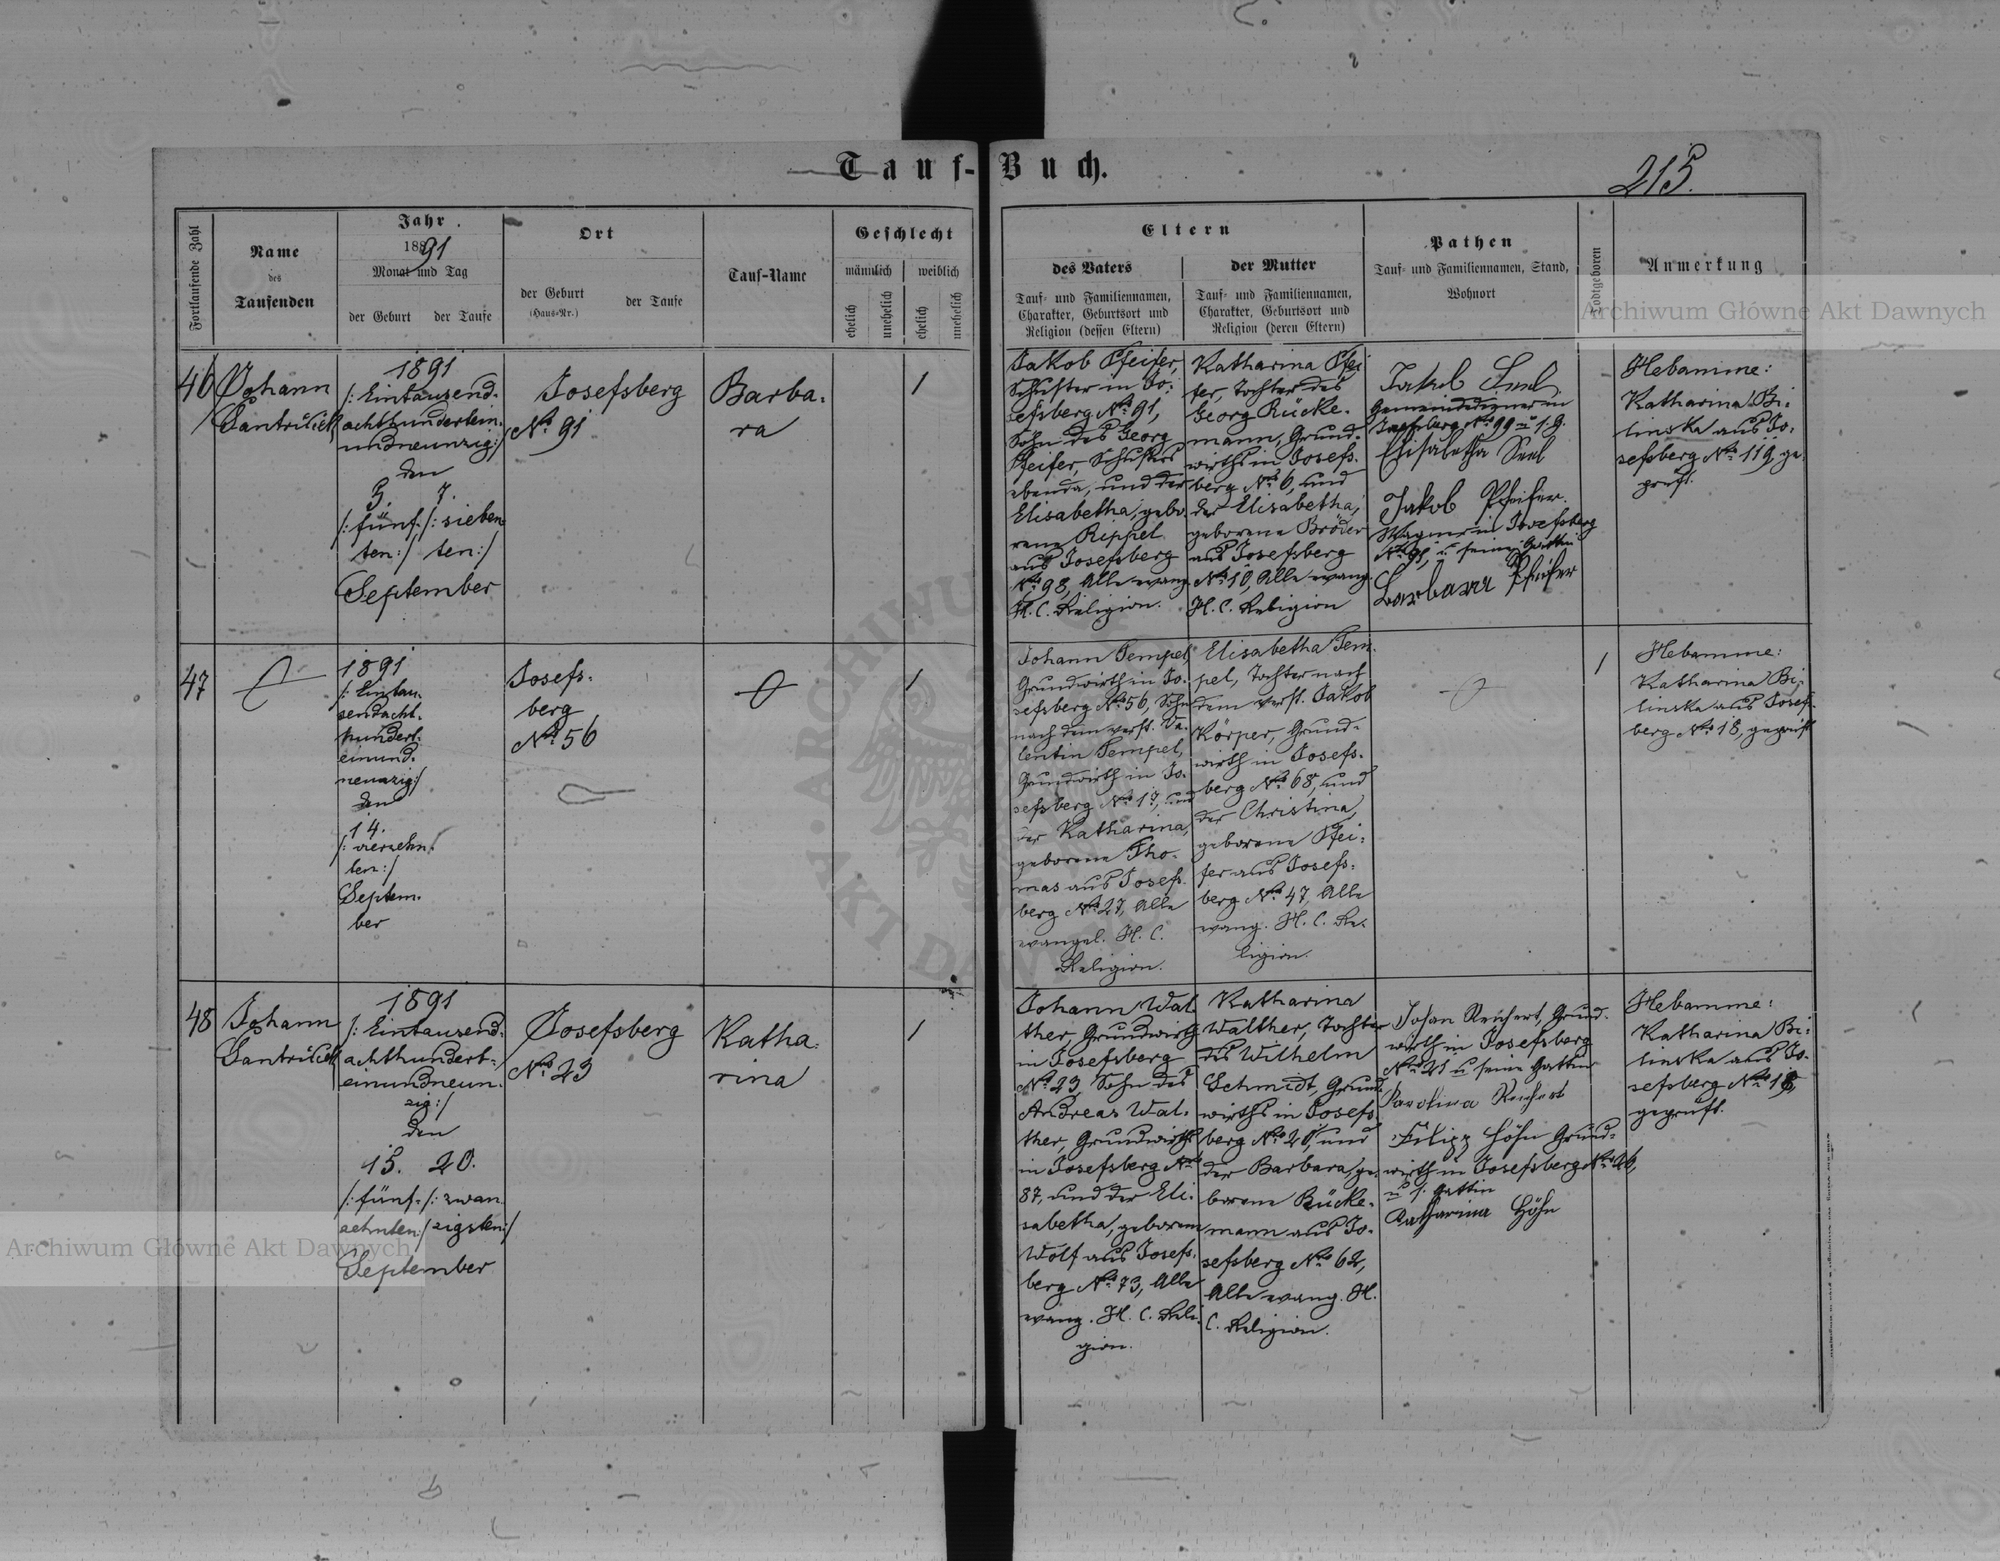 Tauf-Buch.
215.
Fortlaufende Zahl
Name
des
Taufenden
Jahr
1891
Monat und Tag
der Geburt
der Taufe
Ort
der Geburt
(Haus-Nr.)
der Taufe
Tauf-Name
Geschlecht
männlich
weiblich
ehelich
unehelich
ehelich
unehelich
Eltern
des Vaters
Tauf- und Familiennamen,
Charakter, Geburtsort und
Religion (dessen Eltern)
der Mutter
Tauf- und Familiennamen,
Charakter, Geburtsort und
Religion (deren Eltern)
Pathen
Tauf- und Familiennamen, Stand,
Wohnort
Todtgeboren
Anmerkung
46
Johann
1891
/: Eintausend-
achthundertein-
undneunzig:/
den
5. 7.
/: fünf- /: sieben-
ten:/ ten:/
September
Josefsberg
No 91
Barba-
ra
1
Jakob Pfeifer,
Schuster in Jo-
sefsberg No 91,
Sohn des Georg
Pfeifer, Schusters
ebenda, und der
Elisabetha, gebo-
rene Rippel
aus Josefsberg
No 98, Alle evang.
H. C. Religion.
Katharina Pfei-
fer, Tochter des
Georg Rücke-
mann, Grund-
wirths in Josefs-
berg No 6, und
der Elisabetha,
geborene Bröder
aus Josefsberg
No 10, Alle evang.
H. C. Religion
Jakob Seel
Gemeindediener in
Josefsberg No 99 u. s. g.
Elisabetha Seel
Jakob Pfeifer
Wagner in Josefsberg
No 91, u. seine Gattin
Barbara Pfeifer
Hebamme:
Katharina Bi-
linska aus Jo-
sefsberg No 119, ge-
prüft.
47
1891
/: Eintau-
sendacht-
hundert-
einund-
neunzig:/
den
14.
/: vierzehn-
ten:/
Septem-
ber
Josefs-
berg
No 56
1
Johann Tempel,
Grundwirth in Jo-
sefsberg No 56, Sohn
nach dem verst. Va-
lentin Tempel,
Grundwirth in Jo-
sefsberg No 17, und
der Katharina,
geborene Tho-
mas aus Josefs-
berg No 27, Alle
evangel. H. C.
Religion.
Elisabetha Tem-
pel, Tochter nach
dem verst. Jakob
Körper, Grund-
wirth in Josefs-
berg No 68, und
der Christina,
geborene Pfei-
fer aus Josefs-
berg No 47, Alle
evang. H. C. Re-
ligion.
1
Hebamme:
Katharina Bi-
linska aus Josefs-
berg No 18, geprüft
48
Johann
1891
/: Eintausend-
achthundert-
einundneun-
zig:/
den
15. 20.
/: fünf- /: zwan-
zehnten:/ zigsten:/
September
Josefsberg
No 23
Katha-
rina
1
Johann Wal-
ther, Grundwirth
in Josefsberg
No 23, Sohn des
Andreas Wal-
ther, Grundwirths
in Josefsberg No
87, und der Eli-
sabetha, geborene
Wolf aus Josefs-
berg No 73, Alle
evang. H. C. Reli-
gion.
Katharina
Walther, Tochter
des Wilhelm
Schmidt, Grund-
wirths in Josefs-
berg No 20, und
der Barbara, ge-
borene Rücke-
mann aus Jo-
sefsberg No 62,
Alle evang. H.
C. Religion.
Johan Reichert, Grund-
wirth in Josefsberg
No 21 u. seine Gattin
Karolina Reichert
Filipp Höhn Grund-
wirth in Josefsberg No 26,
u. s. Gattin
Katharina Höhn
Hebamme:
Katharina Bi-
linska aus Jo-
sefsberg No 18,
geprüft.
Archiwum Główne Akt Dawnych
Archiwum Główne Akt Dawnych